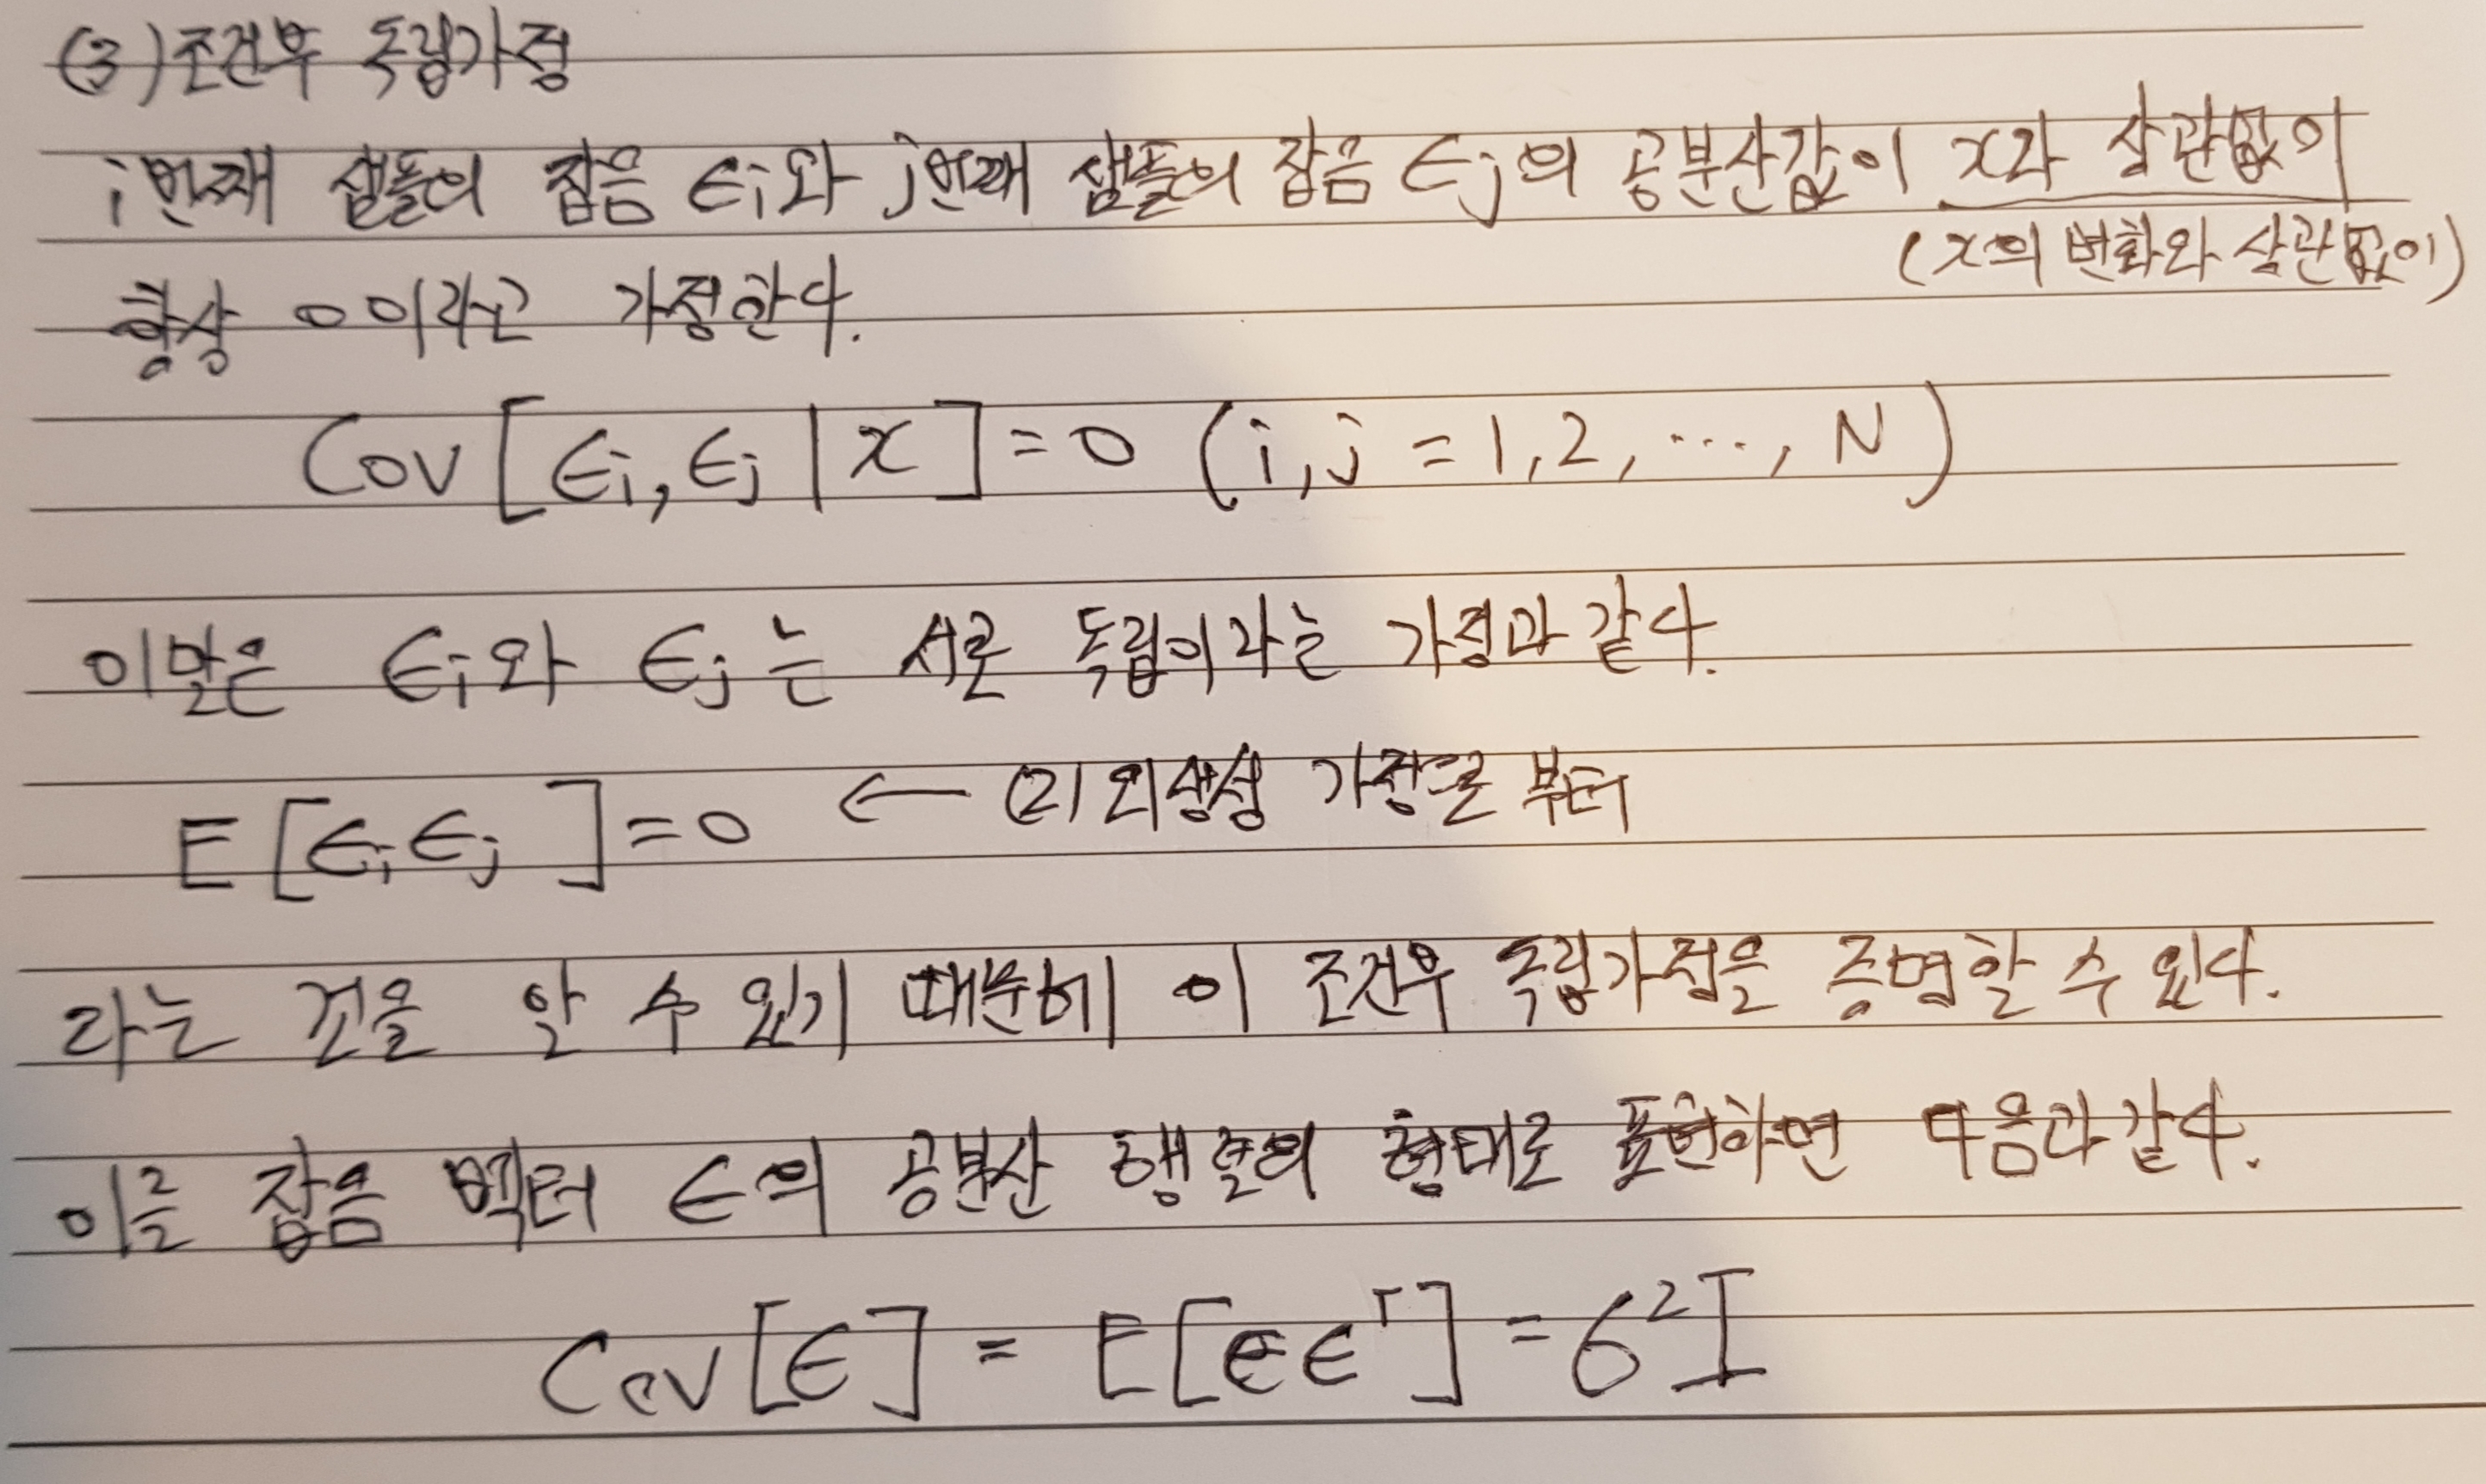 (3) 조건부 독립가정
i번째 샘플의 잡음 ϵi와 j번째 샘플의 잡음 ϵj의 공분산값이 x와 상관없이
(x의 변화와 상관없이)
항상 0이라고 가정한다.
Cov[ϵi, ϵj | x] = 0 (i, j = 1, 2, ⋯, N)
이말은 ϵi와 ϵj는 서로 독립이라는 가정과 같다.
E[ϵiϵj] = 0 ← (2) 외생성 가정으로 부터
라는 것을 알 수 있기 때문에 이 조건부 독립가정을 증명할 수 있다.
이를 잡음 벡터 ϵ의 공분산 행렬의 형태로 표현하면 다음과 같다.
Cov[ϵ] = E[ϵϵᵀ] = σ²I